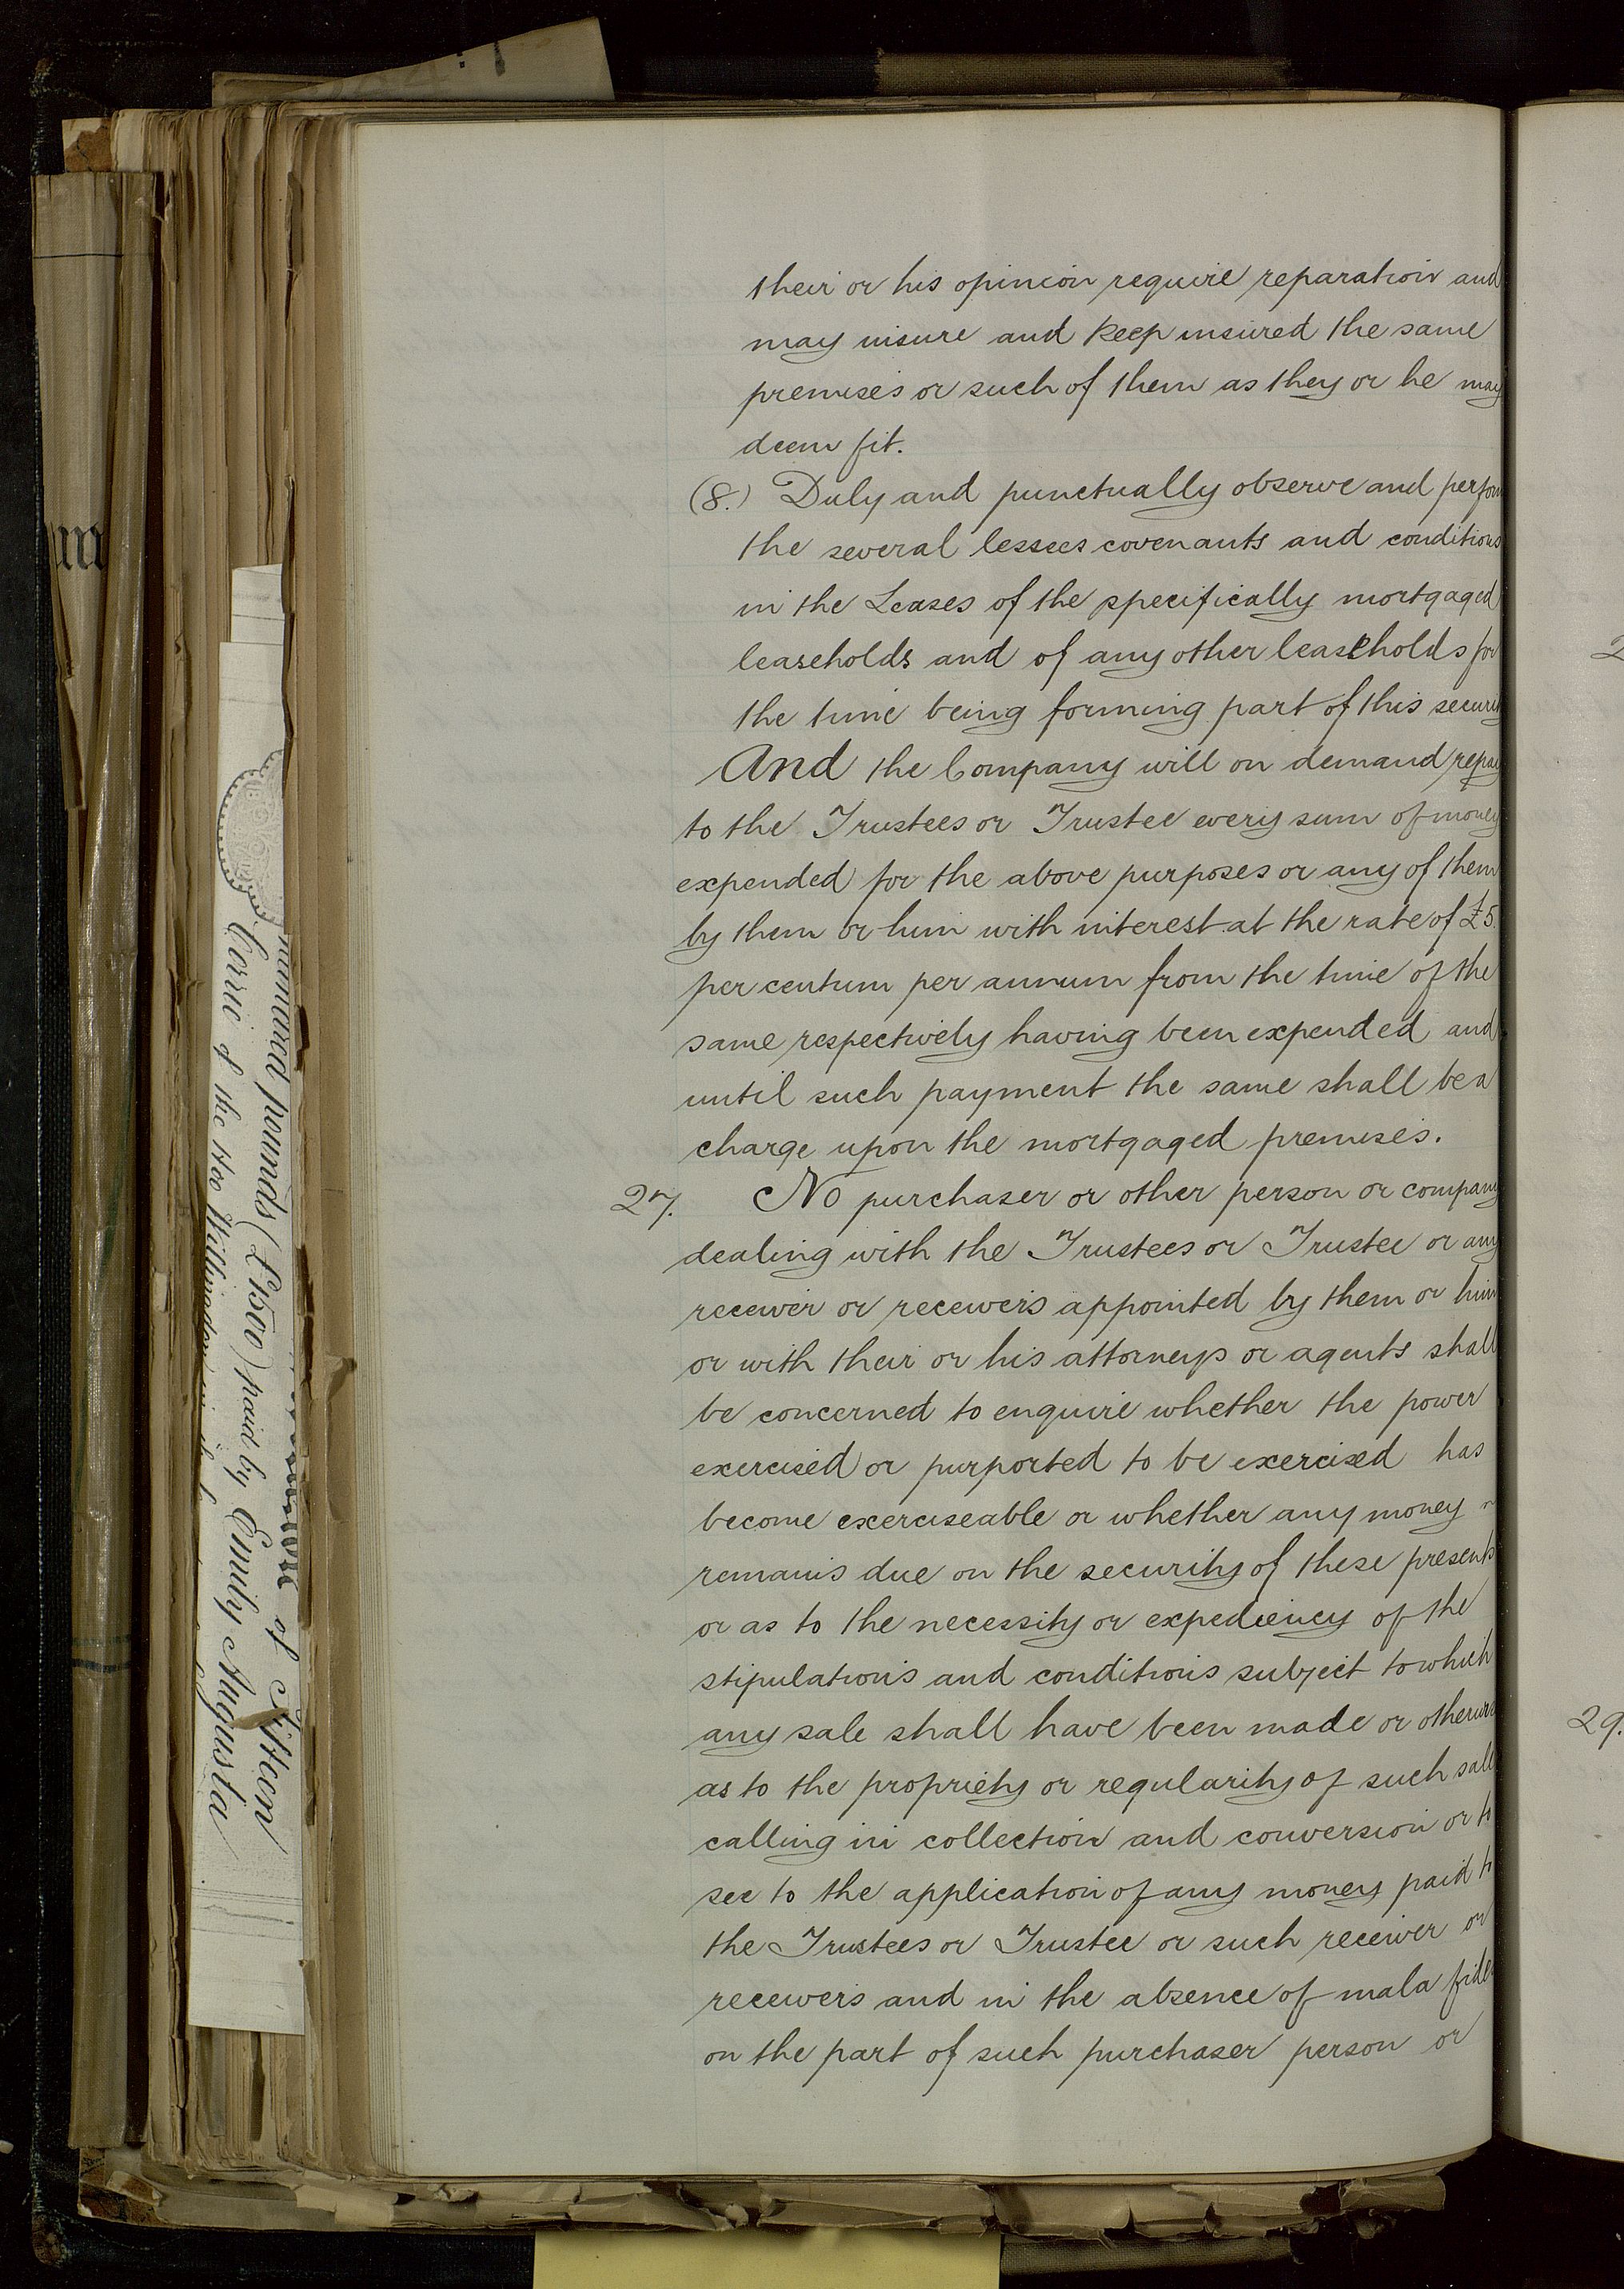 their or his opinion require reparation and
may insure and keep insured the same
premises or such of them as they or he may
deem fit.
(8.) Duly and punctually observe and perform
the several lessees covenants and conditions
in the Leases of the specifically mortgaged
leaseholds and of any other leaseholds for
the time being forming part of this security
And the Company will on demand repay
to the Trustees or Trustee every sum of money
expended for the above purposes or any of them
by them or him with interest at the rate of £5
per centum per annum from the time of the
same respectively having been expended and
until such payment the same shall be a
charge upon the mortgaged premises.
27. No purchaser or other person or company
dealing with the Trustees or Trustee or any
receiver or receivers appointed by them or him
or with their or his attorneys or agents shall
be concerned to enquire whether the power
exercised or purported to be exercised has
become exerciseable or whether any money
remains due on the security of these presents
or as to the necessity or expediency of the
stipulations and conditions subject to which
any sale shall have been made or otherwise
as to the propriety or regularity of such sale
calling in collection and conversion or to
see to the application of any money paid to
the Trustees or Trustee or such receiver or
receivers and in the absence of mala fides
on the part of such purchaser person or
of Fifteen
hundred pounds (£1500) paid by Emily Augusta
Corrie of the Hoo Willingdon
2
29.